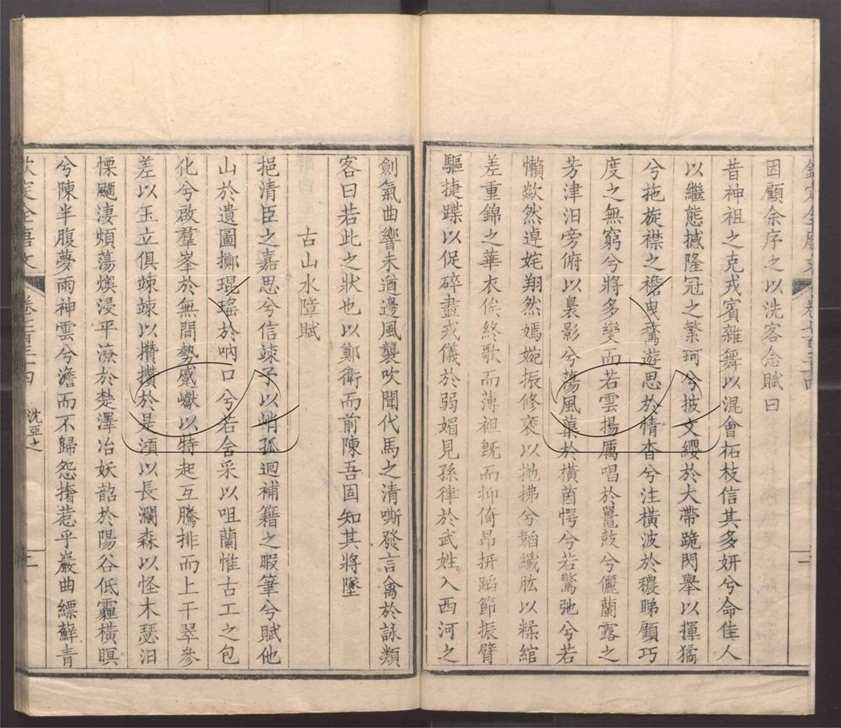 因顧余序之以洗客念賦曰
昔神祖之克戎賓雜舞以混會柘枝信其多妍兮命佳人
以繼態撼隆冠之繁珂兮披文纓於大帶跪閃舉以揮㩴
兮拖旋襟之襜曳驚遊思於情杳兮注橫波於穠睇顧巧
度之無窮兮將多變而若雲揚厲唱於鼉鼓兮儷蘭露之
芳津汨旁俯以裊影兮蕩風蕖於橫茵愕兮若驚弛兮若
懶欻然逴姹翔然嫣婉振修袤以拋拂兮韜纖肱以糅綰
差重錦之華衣俟終歌而薄袒旣而抑倚昂拼蹈節振臂
驅捷蹀以促碎盡戎儀於弱媚見孫律於武姓入西河之
劍氣曲響未遒邊風襲吹聞代馬之清嘶發言禽於詠類
客曰若此之狀也以鄭衛而前陳吾固知其將墜
古山水障賦
挹清臣之嘉思兮信竦予以峭孤迴補籍之暇筆兮賦他
山於遺圖擲琨瑤於吶口兮若含采以咀蘭惟古工之包
化兮啟羣峯於無間勢感巘以特起互騰排而上干翠參
差以玉立俱竦竦以攢攢於是澒以長瀾森以怪木瑟汨
慄飅淒頫蕩燠浸平濂於楚澤冶妖韶於陽谷低霾橫瞑
兮陳半腹夢雨神雲兮澹而不歸怨㩛惹乎巖曲縹蘚青
欽定全唐文
卷七百三十四 沈亞之